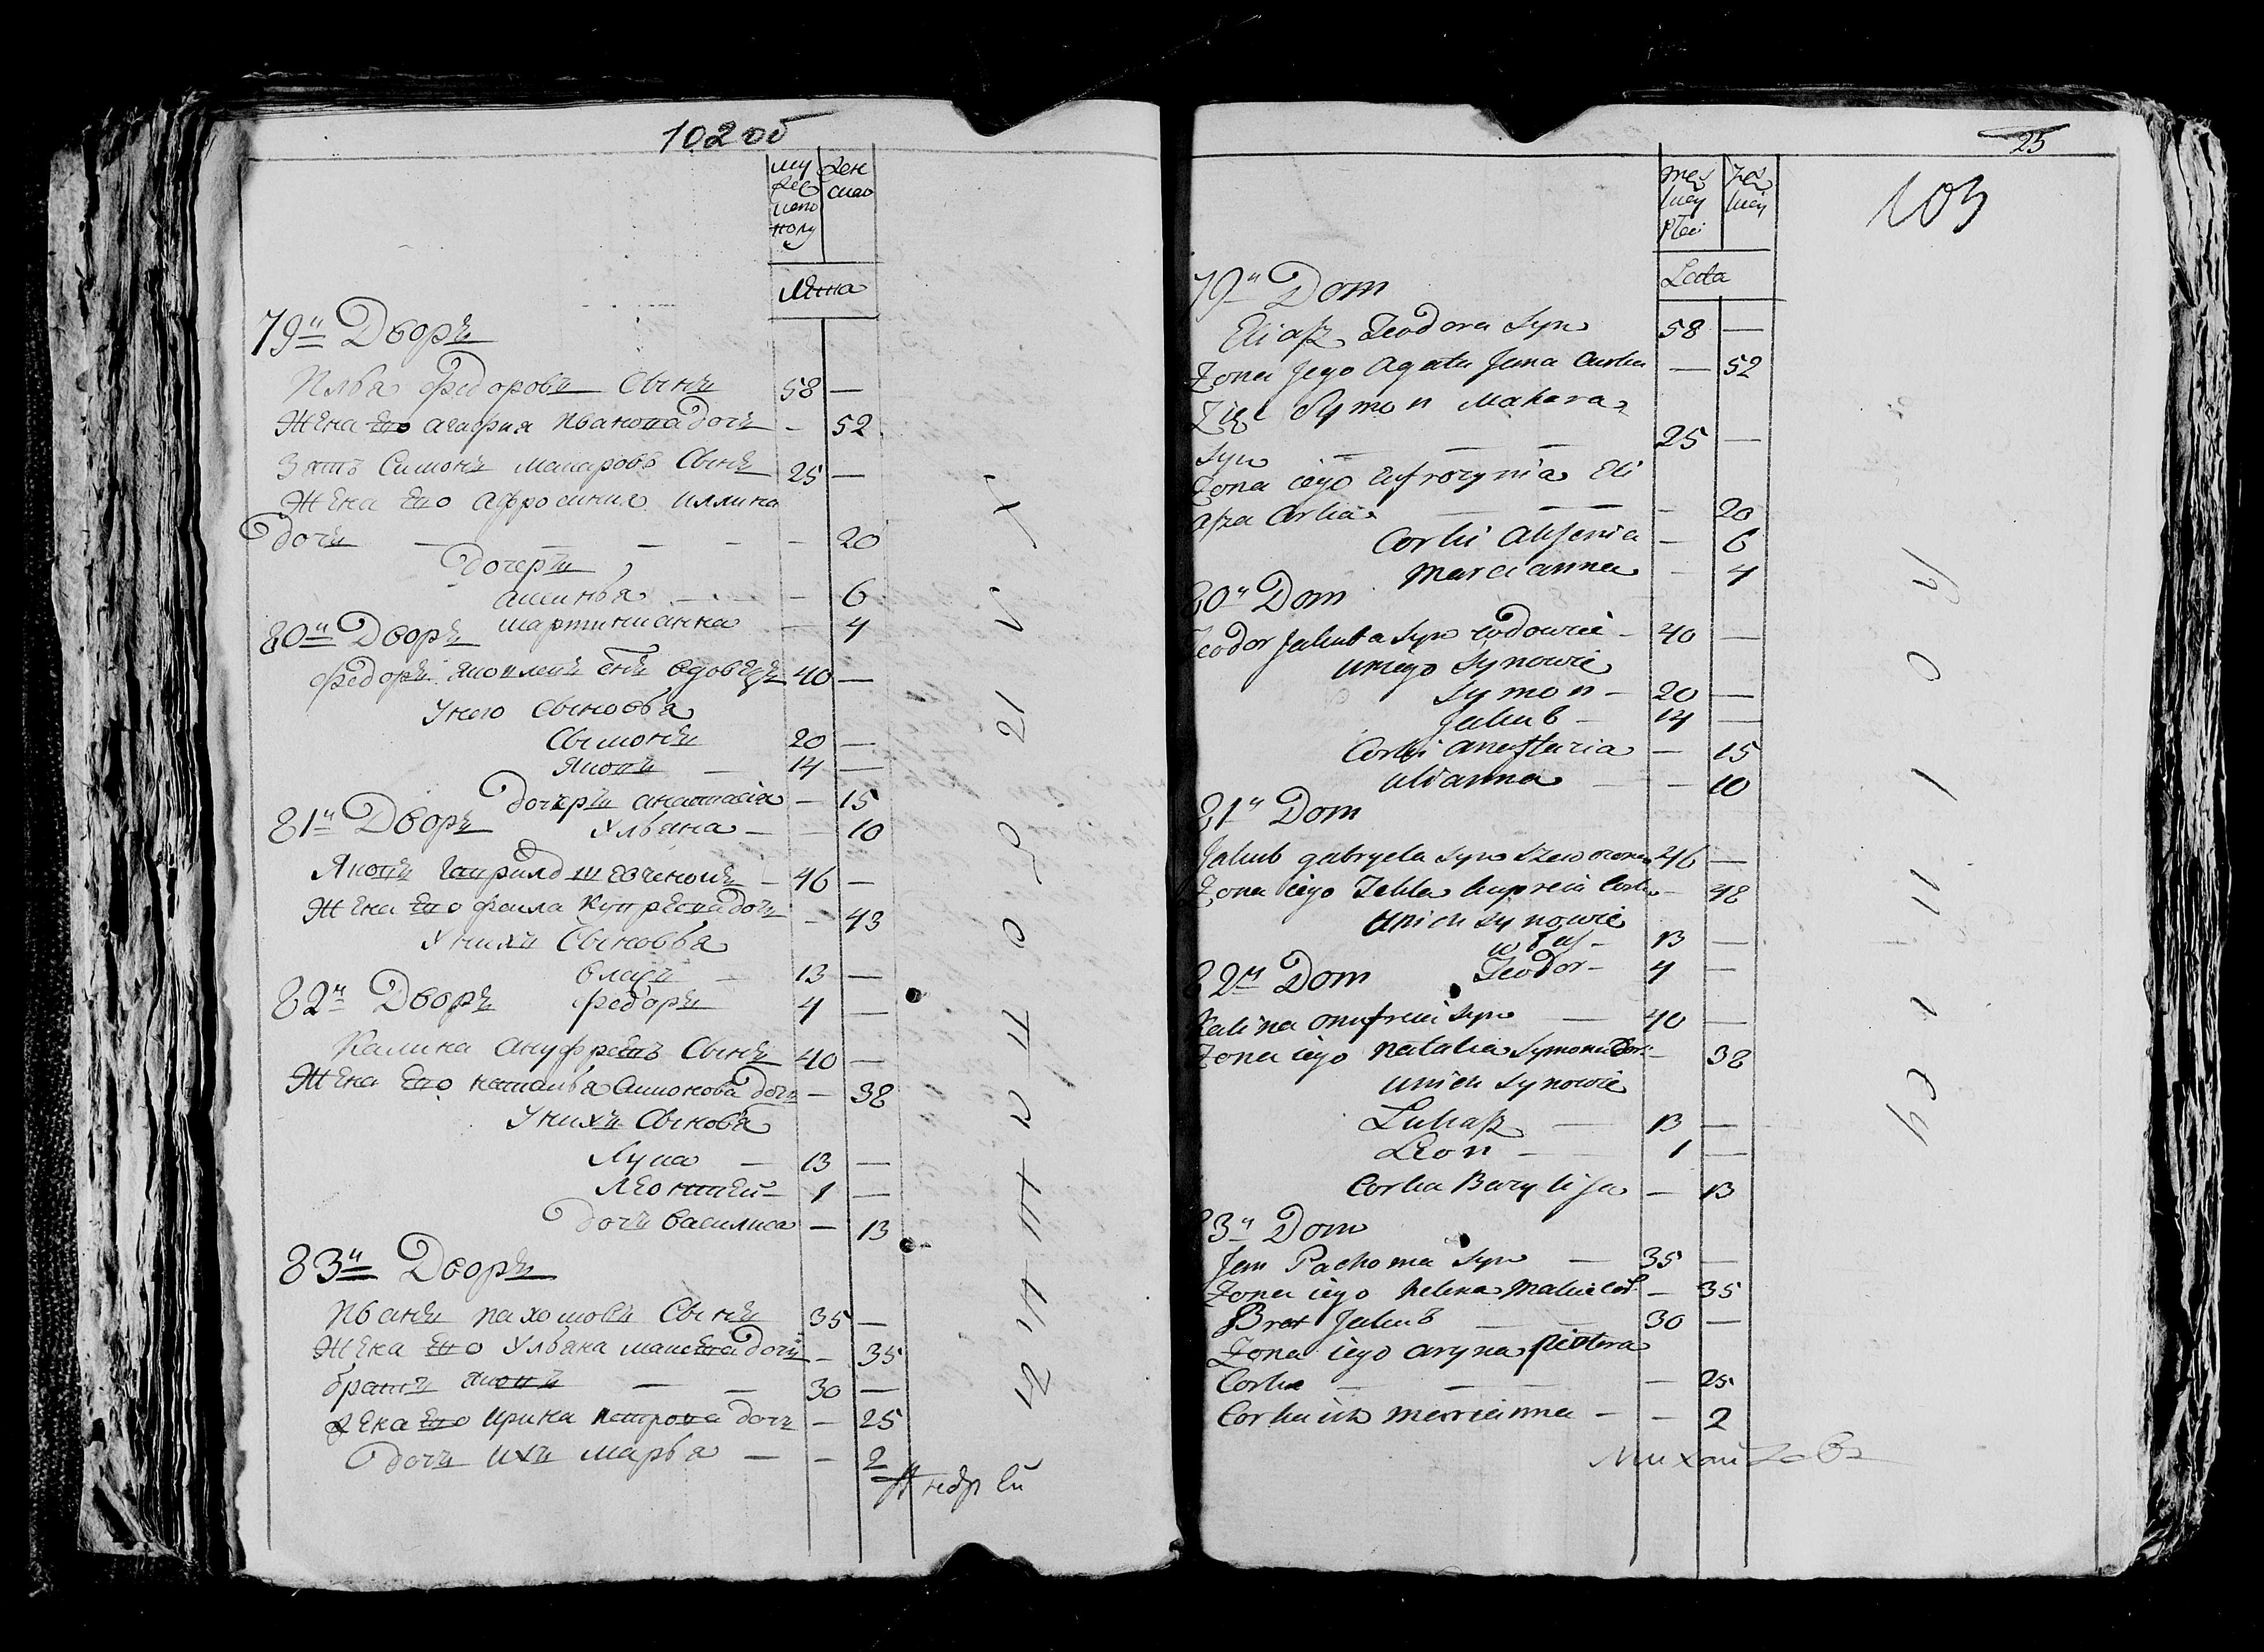 102 об
му
жес
каго
полу
жен
скаго
Лѣта
79й Дворъ
Илья Федоровъ Сынъ 58 —
Жена Его агафия Иванова Дочь — 52
Зять Симонъ макаровъ Сынъ 25 —
Жена Его афросиния иллина
дочь — — — — — 20
дочеръи
аксинья — — 6
мартинианна — 4
80й Дворъ
Федоръ яковлевъ снъ вдовецъ 40 —
У него Сыновья
Сымонъ 20 —
Яковъ — 14 —
дочеръи анастасія — 15
Ульяна — — 10
81й Дворъ
Яковъ гаврилов шевченокъ — 46 —
Жена Его фекла Купреева дочь — 43
У нихъ Сыновья
власъ — 13 —
федоръ 4 —
82й Дворъ
Калина Ануфреевъ Сынъ 40 —
Жена Его наталья Симонова дочь — 38
У нихъ Сыновья
Лука — 13 —
Леонтей — 1 —
дочь Василиса — 13
83й Дворъ
Иванъ пахомовъ Сынъ 35 —
Жена Его Ульяна макеева дочь — 35
братъ яковъ — — 30 —
жена Его ирина петрова дочь — 25
дочь ихъ марья — — 2
Андрей
25
103
Lata
79й Dom
Eliasz Teodora Syn 58 —
Zona Jego Agata Jana Curka — 52
Zięć Symon Makara
Syn — — 25 —
Zona iego Eufrozynia Eli
asza Corka — — — 20
Corki Aksenia — 6
Marcianna — 4
80й Dom
Teodor Jakuba Syn wdowiec — 40 —
u niego Synowie
Symon — 20 —
Jakub — 14 —
Corki Anastazia — 15
Ulianna — — 10
81й Dom
Jakub gabryela Syn Szewczonek 46 —
Zona iego Tekla Kupreia Corka — 48
u nich Synowie
Włas — 13 —
Teodor — 4 —
82й Dom
Kalina Onufreia Syn — 40 —
Zona iego Natalia Symona Cor: — 38
u nich Synowie
Lukasz — 13 —
Leon — 1 —
Corka Bazylisa — 13
83й Dom
Jan Pachoma Syn — 35 —
Zona iego helena Makie Cor — 35
Brat Jakub — — 30 —
Zona iego Aryna Piotera
Corka — — — 25
Corka ich Marcianna — — 2
Михайловъ